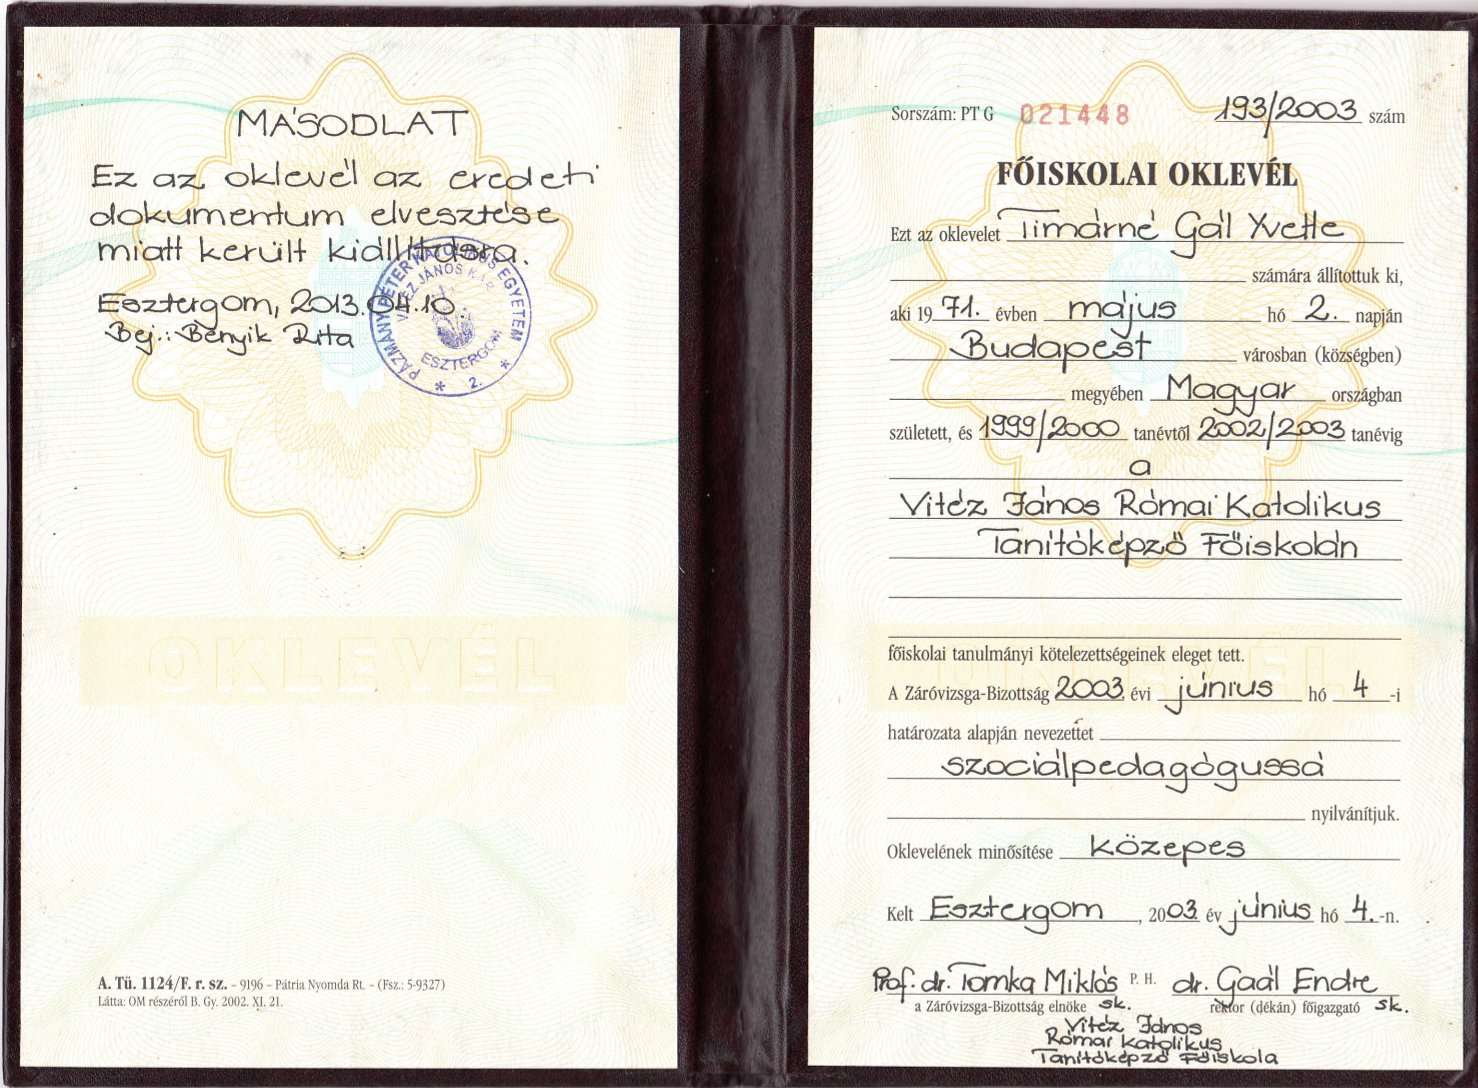 MÁSODLAT
Ez az oklevél az eredeti
dokumentum elvesztése
miatt került kiállításra.
Esztergom, 2013.04.10.
Bej.: Benyik Rita
PÁZMÁNY PÉTER KATOLIKUS EGYETEM
VITÉZ JÁNOS KAR
ESZTERGOM
* 2. *
OKLEVÉL
A. Tü. 1124/F. r. sz. – 9196 – Pátria Nyomda Rt. – (Fsz.: 5-9327)
Látta: OM részéről B. Gy. 2002. XI. 21.
Sorszám: PT G 021448 193/2003 szám
FŐISKOLAI OKLEVÉL
Ezt az oklevelet Timárné Gál Yvette
számára állítottuk ki,
aki 1971. évben május hó 2. napján
Budapest városban (községben)
megyében Magyar országban
született, és 1999/2000 tanévtől 2002/2003 tanévig
a
Vitéz János Római Katolikus
Tanítóképző Főiskolán
főiskolai tanulmányi kötelezettségeinek eleget tett.
A Záróvizsga-Bizottság 2003 évi június hó 4 -i
határozata alapján nevezettet
szociálpedagógussá
nyilvánítjuk.
Oklevelének minősítése közepes
Kelt Esztergom, 2003 év június hó 4.-n.
Prof. dr. Tomka Miklós P. H. dr. Gaál Endre
a Záróvizsga-Bizottság elnöke sk. rektor (dékán) főigazgató sk.
Vitéz János
Római Katolikus
Tanítóképző Főiskola